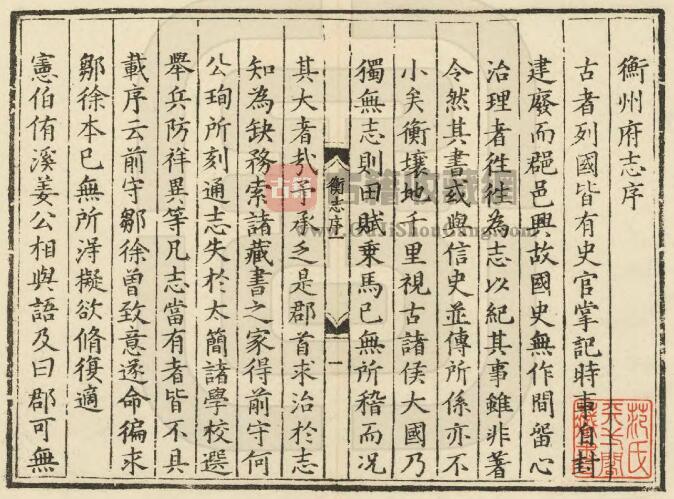 衡州府志序
古者列國皆有史官掌記時事自封
建廢而郡邑興故國史無作間留心
治理者徃徃為志以紀其事雖非著
令然其書或與信史並傳所係亦不
小矣衡壤地千里視古諸侯大國乃
獨無志則田賦乗馬已無所稽而况
衡志序
一
其大者㢤予承乏是郡首求治於志
知為缺務索諸藏書之家得前守何
公珣所刻通志失於太簡諸學校選
舉兵防祥異等凡志當有者皆不具
載序云前守鄒徐曾致意遂命徧求
鄒徐本已無所淂擬欲脩復適
憲伯侑溪姜公相與語及曰郡可無
范氏
天一閣
藏書
古籍收藏網
www.GuJiShouCang.com